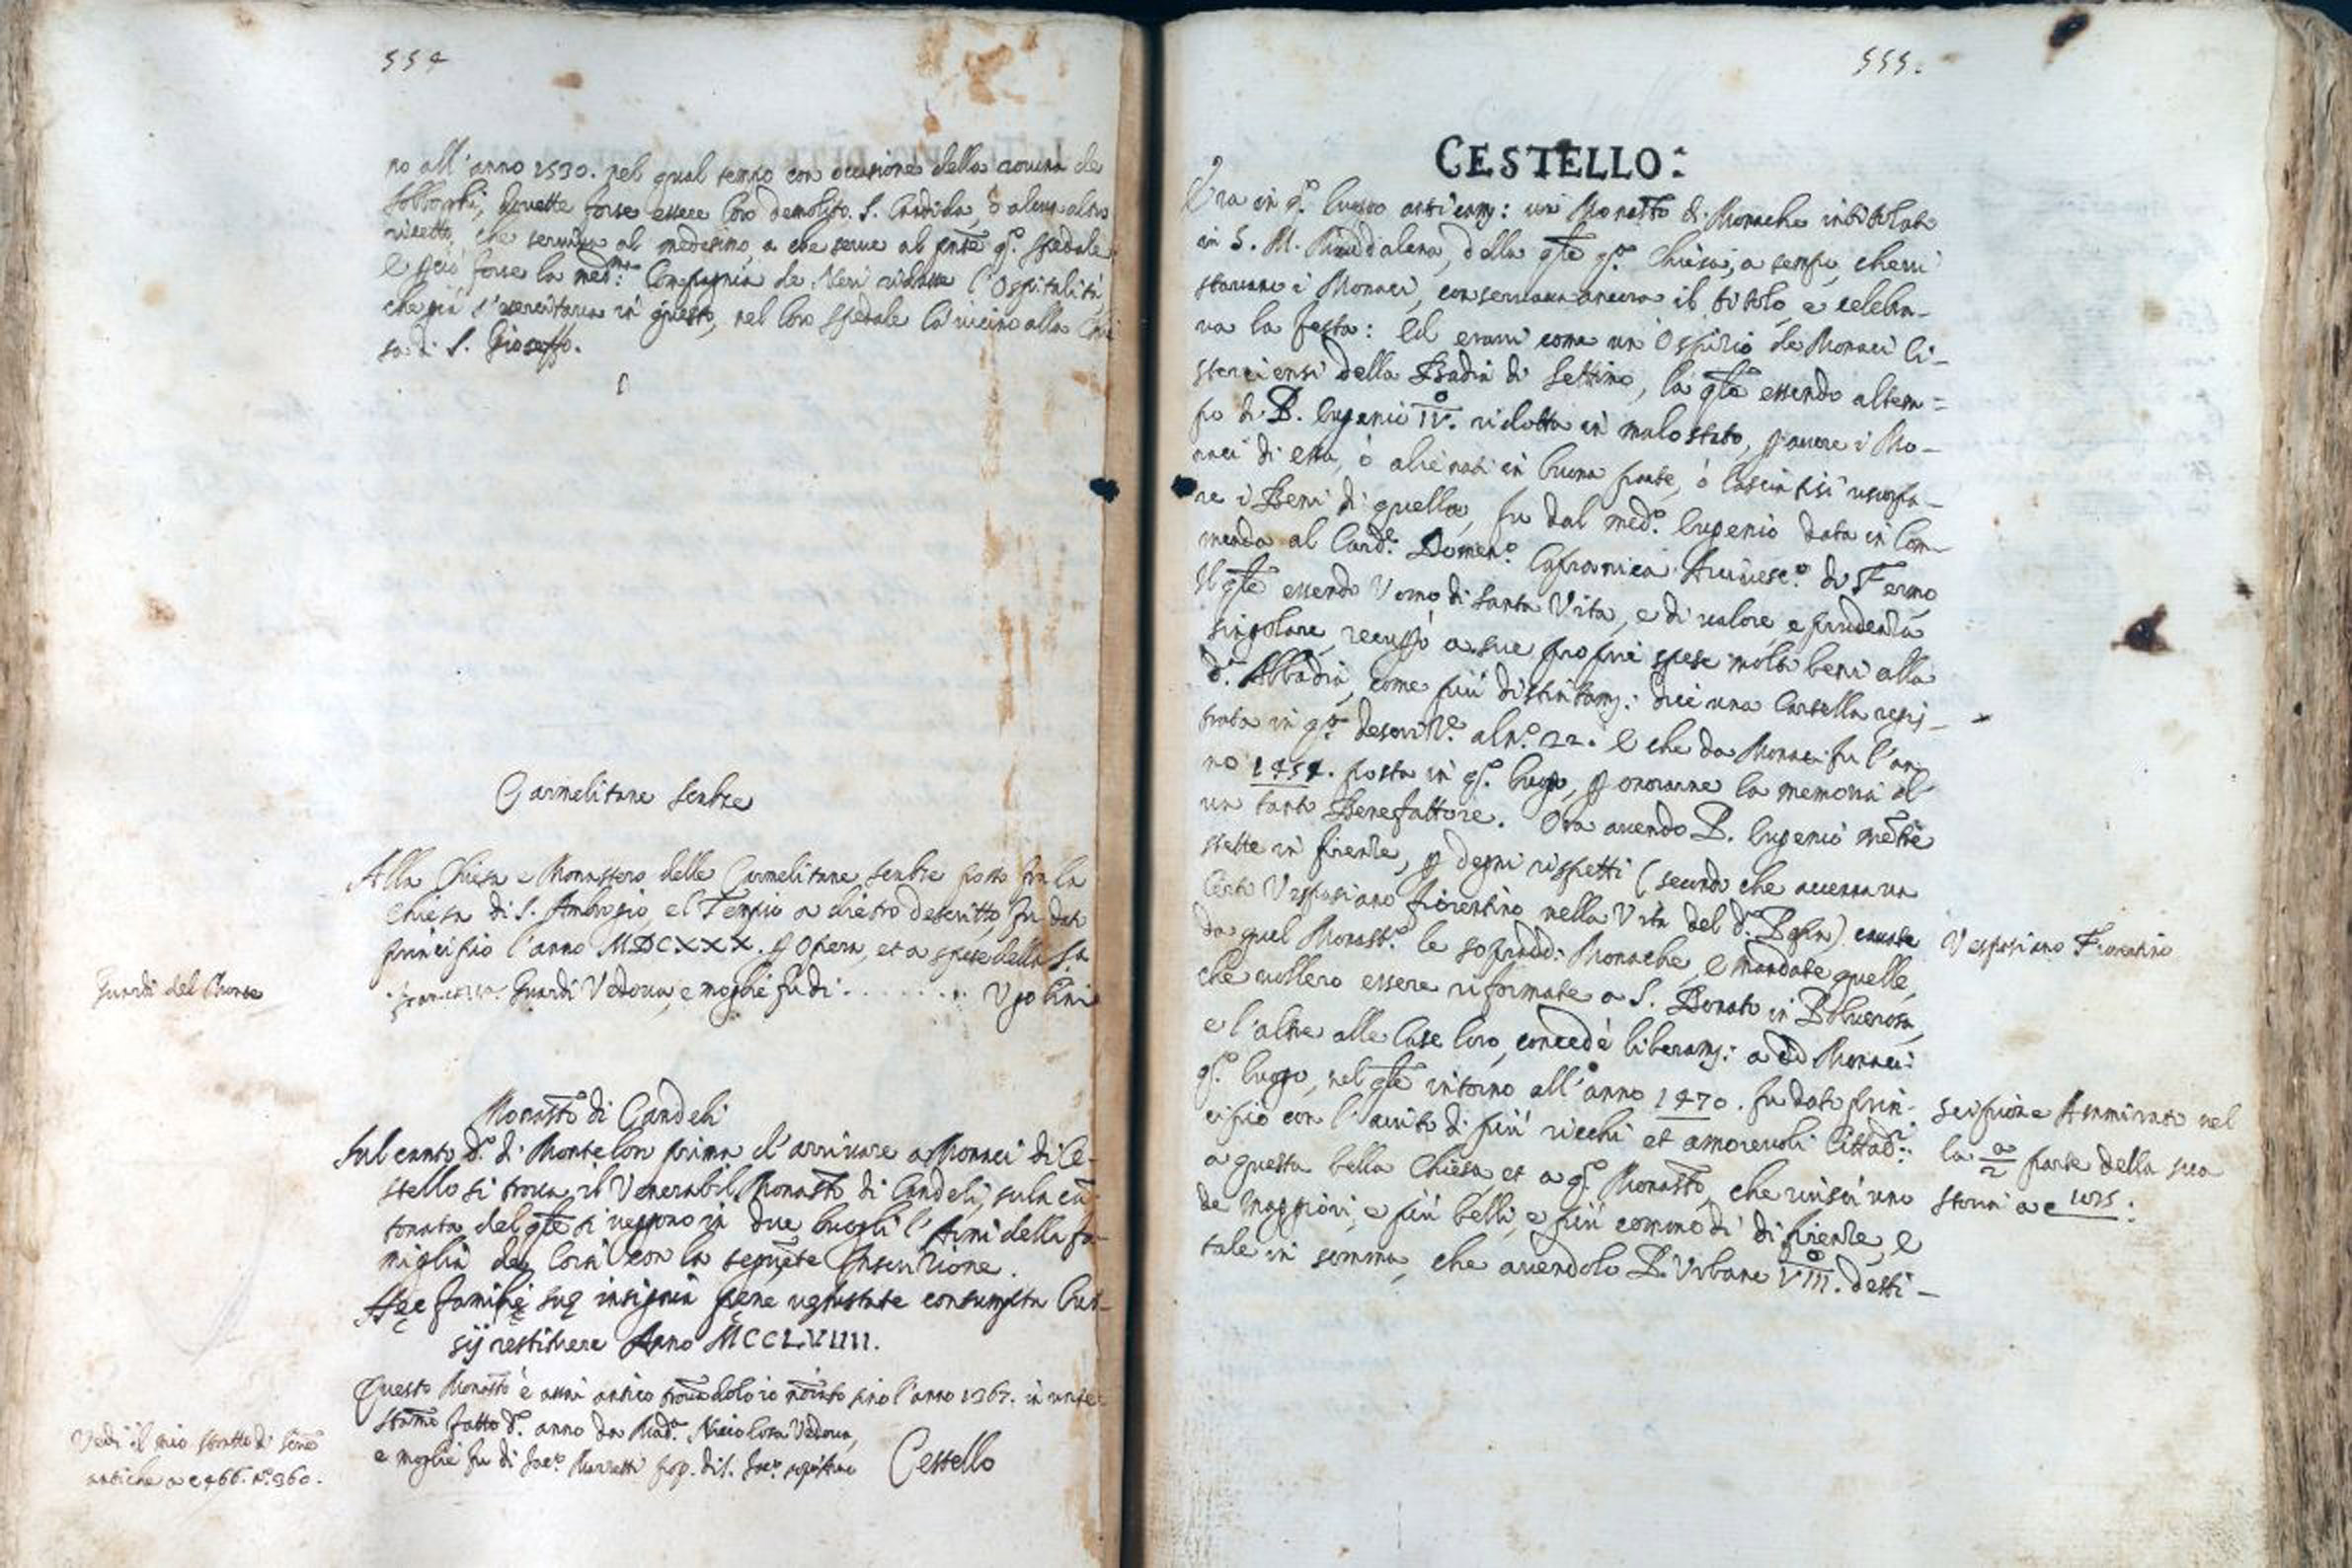 554
no all'anno 1530. nel qual tempo con occasione della rovina de
sobborghi, dovette forse essere loro demolito. S. Candida, ò alcun altro
ricetto, che serviva al medesimo, a che serve al pnte qo. spedale
e però forse la med.ma Compagnia de Neri ridusse l'Ospitalità,
che già s'exercitava in questo, nel loro spedale là vicino alla Chi
sa di S. Gioseffo.
Carmelitane Scalze
Alla Chiesa e Monastero delle Carmelitane Scalze posto fra la
Chiesa di S. Ambrogio, e'l Tempio a dietro descritto, fu dato
principio l'anno MDCXXX. p Opera, et a spese della Sa.
Francesca Guardi Vedova, e moglie fu di . . . . . . . . Ugolini
Guardi del Monte
Monasto. di Candeli
Sul canto do. di Monteloro prima d'arrivare a Monaci di Ce-
stello si trova il Venerabil Monasto. di Candeli, sula can
tonata del qle si veggono in due luoghi l'Armi della fa-
miglia de con la seguete Inscrizione.
Hęc familię suę insignia pene vetustate consumpta
sij restituere Anno MCCLVIIII.
Questo Monasto. è assai antico trovandolo io noiato sino l'anno 1367. in un te-
stamo fatto do. anno da Mada. Niccolosa Vedova,
e moglie fu di Iaco. pop. di S. Iaco.
Vedi il mio
antiche a c 466. no. 360.
Cestello
555.
CESTELLO:
Era in qo. luogo anticamte: un Monasto. di Monache intitolato
in S. M. Maddalena, della qle qa. Chiesa, a tempi, che vi
stavano i Monaci, conservava ancora il titolo, e celebra-
va la festa: Ed eravi come un Ospizio de Monaci Ci-
sterciensi della Badia di Settimo, la qle essendo al tem-
po di P. Eugenio IV.o ridotta in malo stato, p avere i Mo-
naci di essa, ò alienati in buona parte, ò lasciatisi usurpa-
re i Beni di quella, fu dal medo. Eugenio data in Com-
menda al Carde. Domeno. Capranica Arcivesco. di Fermo
Il qle essendo Uomo di santa Vita, e di valore, e prudenza
singolare, recuperò a sue proprie spese molti beni alla
da. Abbadia, come più distintamte: dice una Cartella regis-
trata in qa. descrizne. al no. 22. e che da Monaci fu l'an
no 1454. posta in qo. luogo, p onorarne la memoria di
un tanto Benefattore. Ora avendo P. Eugenio mentre
stette in Firenze, p degni rispetti (secondo che accenna un
Certo Vespasiano fiorentino nella Vita del do. Papa) cavate
da quel Monasto. le sopradde: Monache, e mandate quelle,
che vollero essere riformate a S. Donato in Polverosa,
e l'altre alle Case loro, concedè liberamte: a dd Monaci
qo. luogo, nel qle intorno all'anno 1470. fu dato prin-
cipio con l'aiuto di più ricchi et amorevoli Cittadi:
a questa bella Chiesa et a qo. Monasto. che riuscì uno
de maggiori, e più belli, e più commodi di Firenze, e
tale in somma, che avendolo P. Urbano VIII.o desti-
Vespasiano Fiorentino
Scipione Ammirato nel
la 2a parte della sua
storia a c